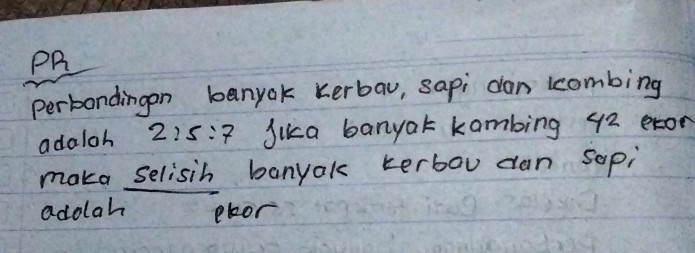 PR
perbandingan banyak kerbau, sapi dan kambing
adalah 2:5:7 Jika banyak kambing 42 ekor
maka selisih banyak kerbau dan sapi
adalah ekor